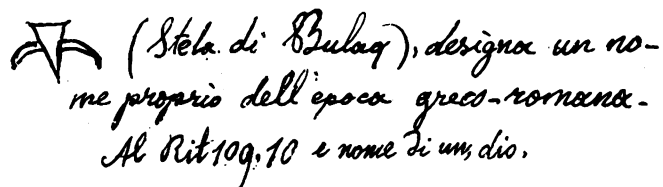 (Stela di Bulaq), designa un no-
me proprio dell'epoca greco-romana.
Al Rit 109.10 e nome di un, dio.